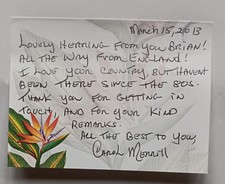 March 15, 2013
Lovely Herring From You Brian!
All the Way From England!
I Love your Country, But Haven't
Been there since the 80s.
Thank you for getting in
touch and for your kind
remarks.
All the best to you,
Carol Merrill